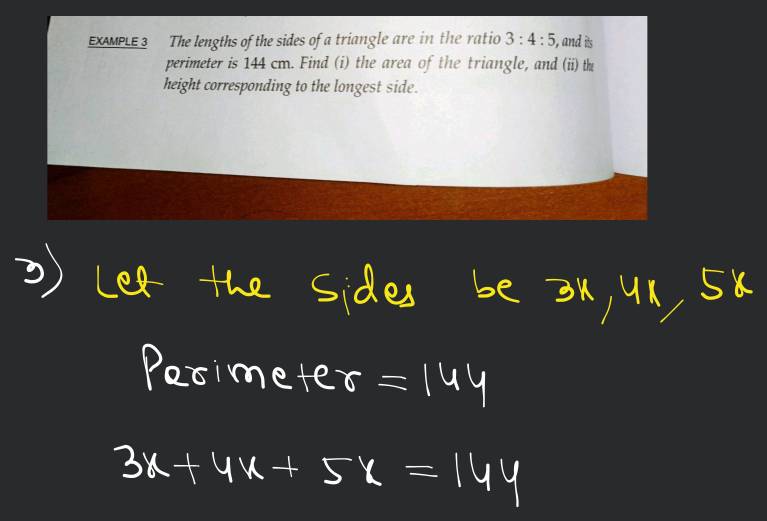 EXAMPLE 3 The lengths of the sides of a triangle are in the ratio 3 : 4 : 5, and its
perimeter is 144 cm. Find (i) the area of the triangle, and (ii) the
height corresponding to the longest side.
3) Let the sides be 3x, 4x, 5x
Perimeter = 144
3x + 4x + 5x = 144